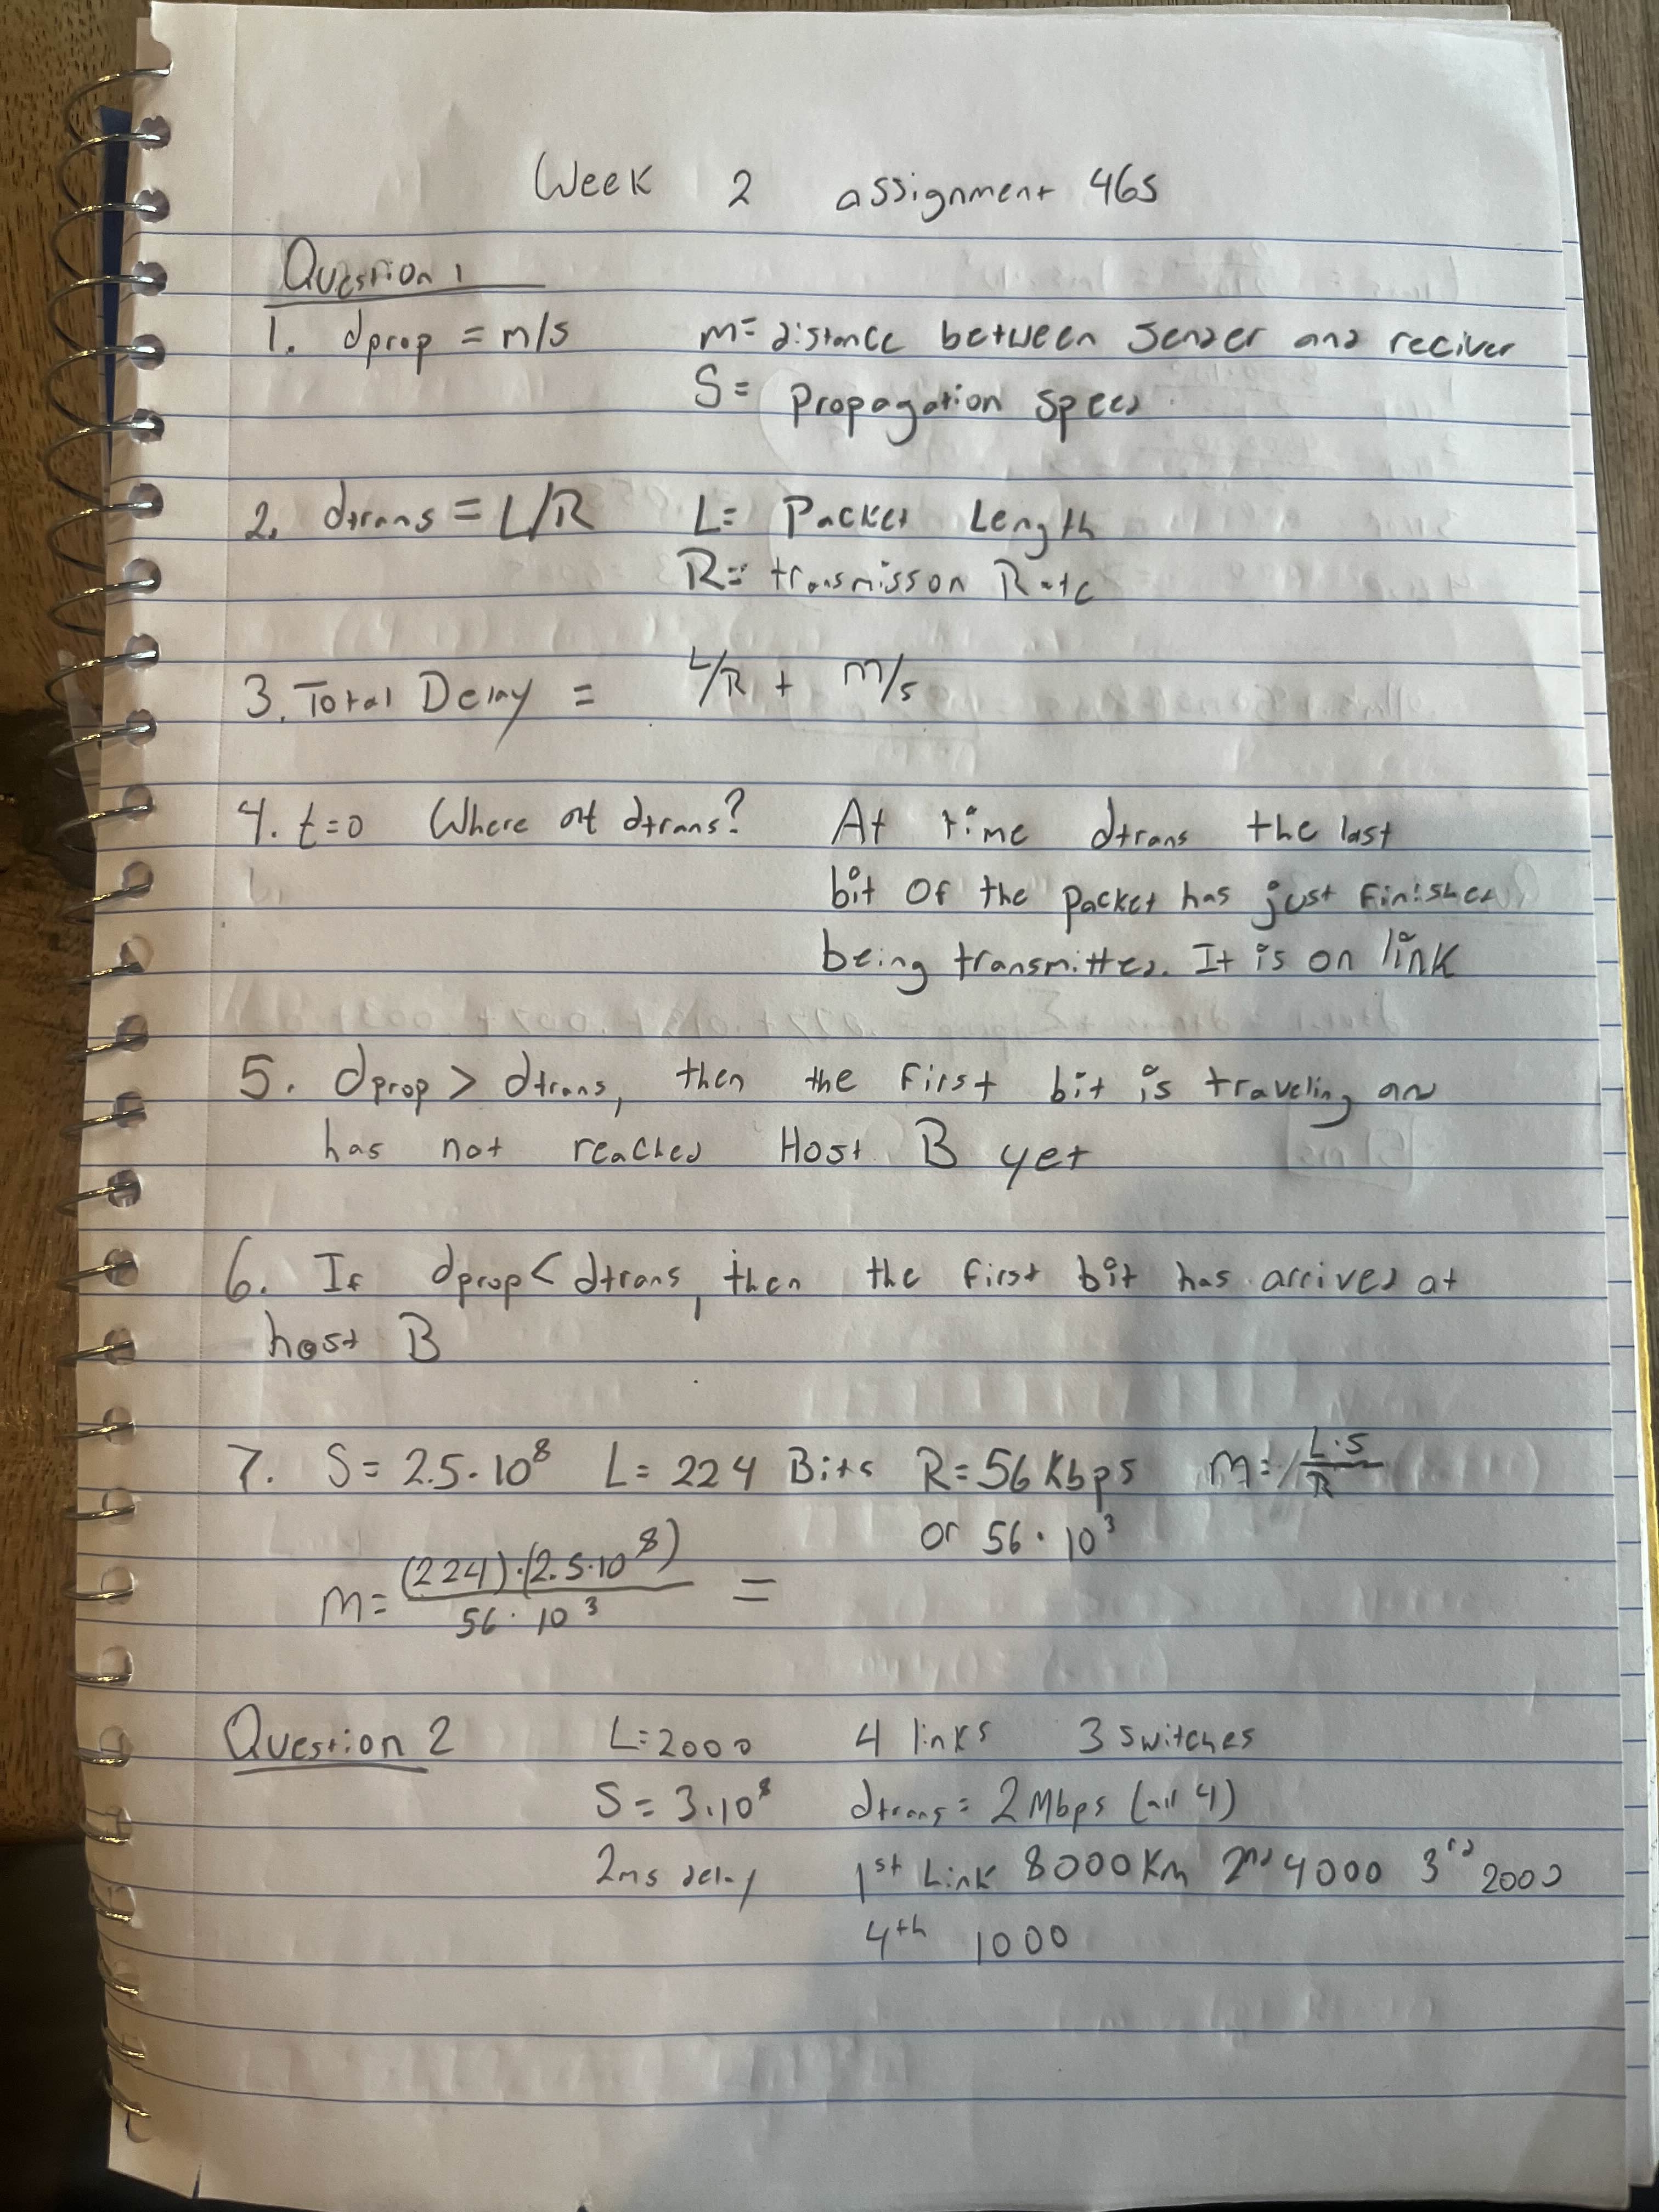 Week 2 assignment 465
Question 1
1. dprop = m/s m= distance between sender and reciver
S= Propagation speed
2. dtrans = L/R L= Packet Length
R= transmisson Rate
3. Total Delay = L/R + m/s
4. t=0 Where at dtrans? At time dtrans the last
bit of the packet has just finished
being transmitted. It is on link
5. dprop > dtrans, then the first bit is traveling and
has not reached Host B yet
6. If dprop < dtrans, then the first bit has arrived at
host B
7. S = 2.5·10⁸ L= 224 Bits R=56 Kbps m= L·S/R
or 56·10³
m= (224)·(2.5·10⁸)/56·10³ =
Question 2 L=2000 4 links 3 switches
S = 3·10⁸ dtrans = 2Mbps (all 4)
2ms delay 1st Link 8000Km 2nd 4000 3rd 2000
4th 1000